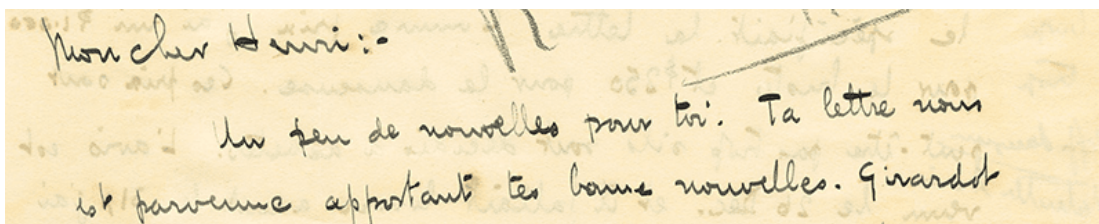 Mon cher Henri:-
Un peu de nouvelles pour toi. Ta lettre nous
est parvenue apportant tes bonnes nouvelles. Girardot